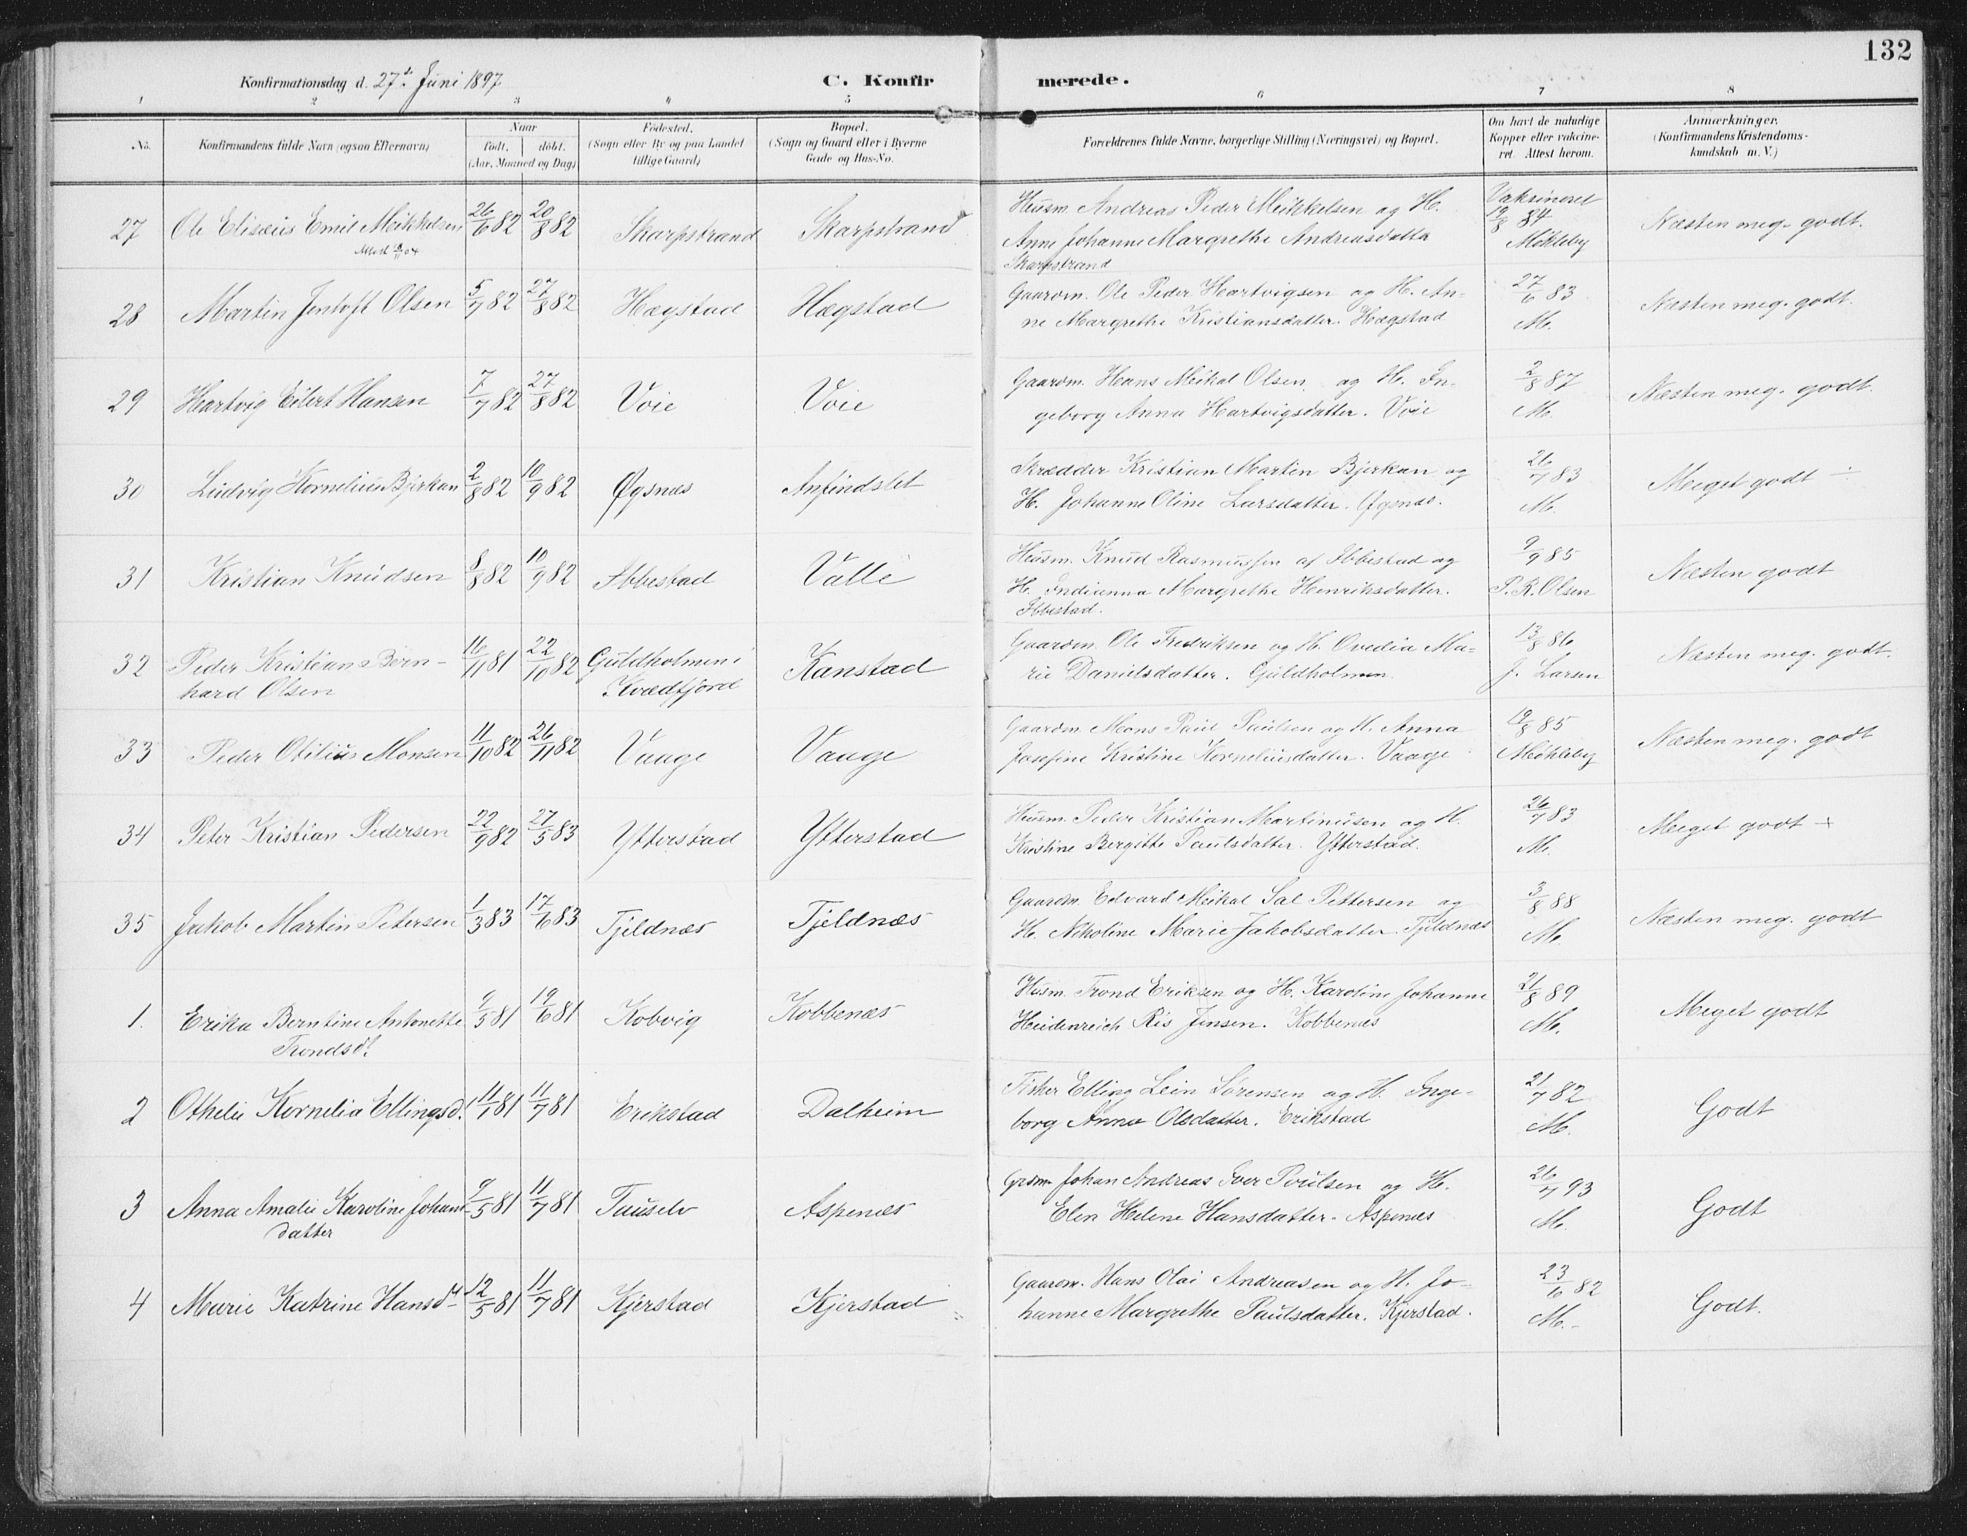 132
Konfirmationsdag d. 27de Juni 1897
C. Konfirmerede.
1 2 3 4 5 6 7 8
No. Konfirmandens fulde Navn (ogsaa Efternavn) Naar født, døbt. (Aar, Maaned og Dag) Fødested. (Sogn eller By og paa Landet tillige Gaard) Bopæl. (Sogn og Gaard eller i Byerne Gade og Hus-No. Forældrenes fulde Navne, borgerlige Stilling (Næringsvei) og Bopæl. Om havt de naturlige Kopper eller vakcineret. Attest herom. Anmærkninger. (Konfirmandens Kristendomskundskab m. V.)
27 Ole Elisæus Emil Mikkelsen 26/6 82 20/8 82 Skarpstrand Skarpstrand Husm. Andreas Peder Mikkelsen og H. Vaksineret 19/8 84 Næsten meg. godt.
Anne Johanne Margrethe Andreasdatter Møkleby
Skarpstrand
28 Martin Jentoft Olsen 5/7 82 27/8 82 Hægstad Hægstad Gaardm. Ole Peder Hartvigsen og H. An- 27/6 83 Næsten meg. godt.
ne Margrethe Kristiansdatter. Hægstad M.
29 Hartvig Eilert Hansen 7/7 82 27/8 82 Voie Voie Gaardm. Hans Mikal Olsen og H. In- 2/8 87 Næsten meg. godt.
geborg Anna Hartvigsdatter. Voie M.
30 Ludvig Kornelius Bjerkan 2/8 82 10/9 82 Øgsnæs Anfindslet Skrædder Kristian Martin Bjerkan og 26/7 83 Meget godt ÷
H. Johanne Oline Larsdatter. Øgsnæs. M.
31 Kristian Knudsen 8/8 82 10/9 82 Ibbestad Valle Husm. Knud Rasmussen af Ibbestad og 9/9 85 Næsten godt
H. Indianna Margrethe Henriksdatter. P. R. Olsen
Ibbestad.
32 Peder Kristian Bern- 16/11 81 22/10 82 Guldholmen i Kanstad Gaardm. Ole Fredriksen og H. Ovedia Ma- 13/8 86 Næsten meg. godt.
hard Olsen Kvædfjord rie Danielsdatter. Guldholmen J. Larsen
33 Peder Otilius Monsen 11/10 82 26/11 82 Vaage Vaage Gaardm. Mons Paul Paulsen og H. Anna 19/8 85 Næsten meg. godt
Josefine Kristine Korneliusdatter. Vaage Møkleby
34 Peter Kristian Pedersen 22/9 82 27/5 83 Ytterstad Ytterstad Husm. Peder Kristian Martinusen og H. 26/7 83 Meget godt +
Kristine Bergitte Paulsdatter. Ytterstad. M.
35 Jakob Martin Petersen 1/3 83 17/6 83 Tjeldnæs Tjeldnæs Gaardm. Edvard Mikal Sal Pettersen og 3/8 88 Næsten meg. godt
H. Nikoline Marie Jakobsdatter. Tjeldnæs M.
1. Erika Berntine Antonette 9/5 81 19/6 81 Kobvig Kobbenæs Husm. Trond Eriksen og H. Karoline Johanne 21/8 89 Meget godt
Trondsdt. Heidenreich Ris Jensen. Kobbenæs M.
2 Othelie Kornelia Ellingsd. 11/1 81 11/7 81 Erikstad Dalheim Fisker Elling Lein Sørensen og H. Inge- 21/7 82 Godt
borg Anna Olsdatter. Erikstad M.
3 Anna Amalie Karoline Johans 9/5 81 11/7 81 Aspenæs Grdm. Johan Andreas Iver Poulsen og H. 26/7 93 Godt
datter Elen Helene Hansdatter. Aspenæs M.
4 Marie Katrine Hansdt 12/5 81 11/7 81 Kjerstad Kjerstad Gaardm. Hans Olai Andreasen og H. Jo- 23/6 82 Godt.
hanne Margrethe Paulsdatter. Kjerstad. M.